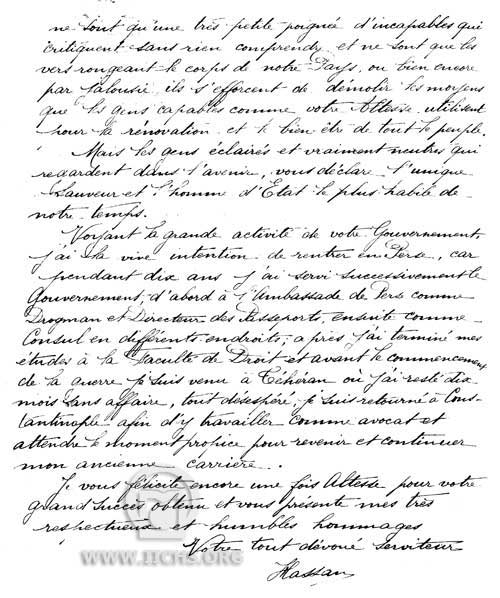 ne sont qu'une très petite poignée d'incapables qui
critiquent sans rien comprendre et ne sont que les
vers rongeant le corps de notre Pays, ou bien encore
par jalousie, ils s'efforcent de démolir les moyens
que les gens capables comme votre Altesse utilisent
pour la rénovation et le bien être de tout le peuple.
Mais les gens éclairés et vraiment neutres qui
regardent dans l'avenir, vous déclare l'unique
Sauveur et l'homme d'Etat le plus habile de
notre temps.
Voyant la grande activité de votre Gouvernement,
j'ai la vive intention de rentrer en Perse, car
pendant dix ans j'ai servi successivement le
Gouvernement, d'abord à l'Ambassade de Perse comme
Drogman et Directeur des Passeports, ensuite comme
Consul en différents endroits; après j'ai terminé mes
études à la Faculté de Droit et avant le commencement
de la guerre je suis venu à Téhéran où j'ai resté dix
mois sans affaire, tout désespéré, je suis retourné à Cons-
tantinople afin d'y travailler comme avocat et
attendre le moment propice pour revenir et continuer
mon ancienne carrière.
Je vous félicite encore une fois Altesse pour votre
grand succès obtenu et vous présente mes très
respectueux et humbles hommages
Votre tout dévoué serviteur
Hassan
WWW.IICHS.ORG